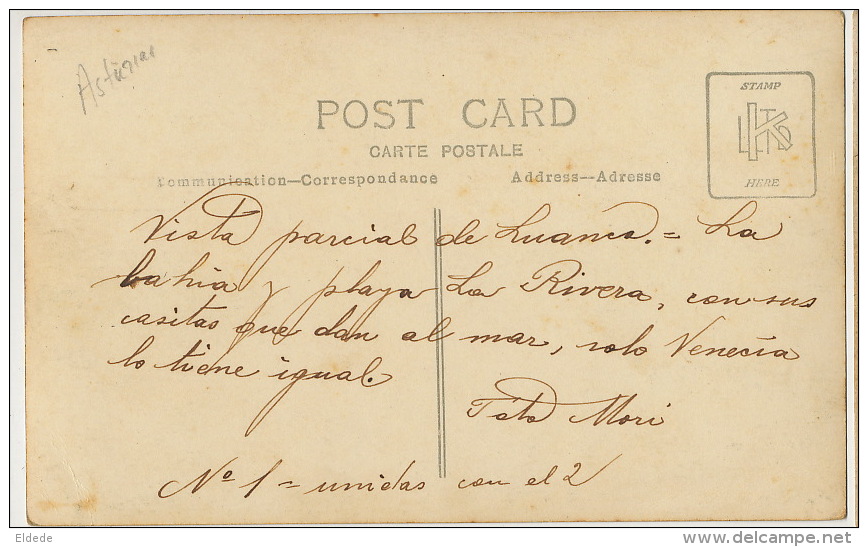 Asturias
POST CARD
CARTE POSTALE
Communication—Correspondance
Address--Adresse
STAMP
HERE
Vista parcial de Luanco. = La
bahia y playa La Rivera, con sus
casitas que dan al mar, solo Venecia
lo tiene igual.
Foto Mori
Nº 1 = unidas con el 2
Eldede
delcampe.net